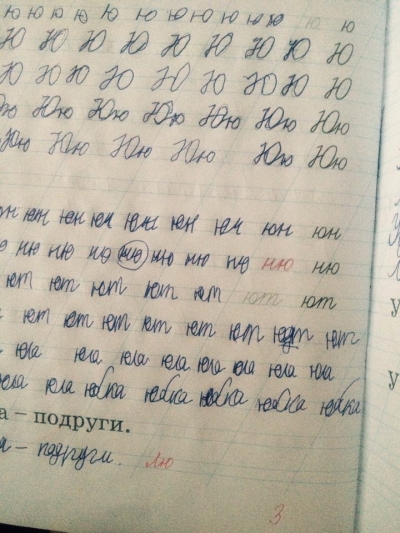 ю ю ю ю ю ю ю ю ю ю ю ю
Ю Ю Ю Ю Ю Ю Ю Ю Ю
Ю Ю Ю Ю Ю Ю Ю Ю Ю
Юю Юю Юю Юю Юю Юю Юю
Юю Юю Юю Юю Юю Юю
юн юн юн юн юн юн юн юн юн
ню ню ню ню ню ню ню ню ню
ют ют ют ют ют ют ют
ют ют ют ют ют ют ют ют
юла юла юла юла юла юла юла юла
юла юла юбка юбка юбка юбка юбка
а – подруги.
а – подруги. лю
3